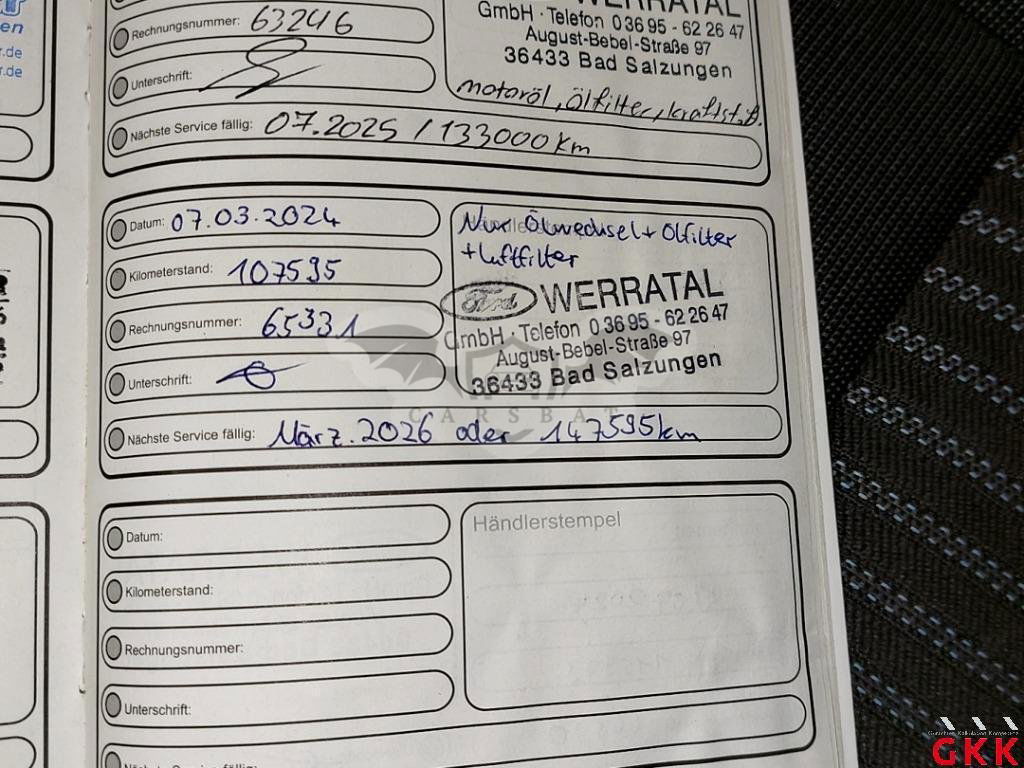 en
.de
.de
Rechnungsnummer: 63246
WERRATAL
GmbH · Telefon 0 36 95 - 62 26 47
August-Bebel-Straße 97
36433 Bad Salzungen
Unterschrift:
motoröl, Ölfilter, kraftst.f.
Nächste Service fällig: 07.2025 / 133000 km
Datum: 07.03.2024
Nur Ölwechsel + Ölfilter
+ Luftfilter
Kilometerstand: 107595
Ford WERRATAL
GmbH · Telefon 0 36 95 - 62 26 47
August-Bebel-Straße 97
36433 Bad Salzungen
Rechnungsnummer: 65331
Unterschrift:
CARSBAT
Nächste Service fällig: März.2026 oder 147595km
Datum:
Händlerstempel
Kilometerstand:
Rechnungsnummer:
Unterschrift:
Nächste Service fällig:
GKK